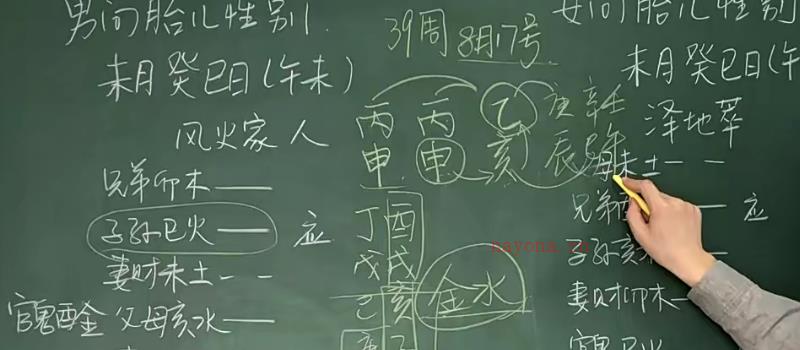 男问胎儿性别.
未月癸巳日(午未)
风火家人
兄弟卯木
子孙巳火 应
妻财未土
官鬼酉金 父母亥水
39周 8月17号
丙 丙 乙 庚 辛 壬
申 申 亥 辰
丁 酉
戊 戌
己 亥
金水
女问胎儿性别
未月癸巳日(午
泽地萃
未土
兄弟 应
子孙亥
妻财卯木
官鬼巳火
nayona.cn